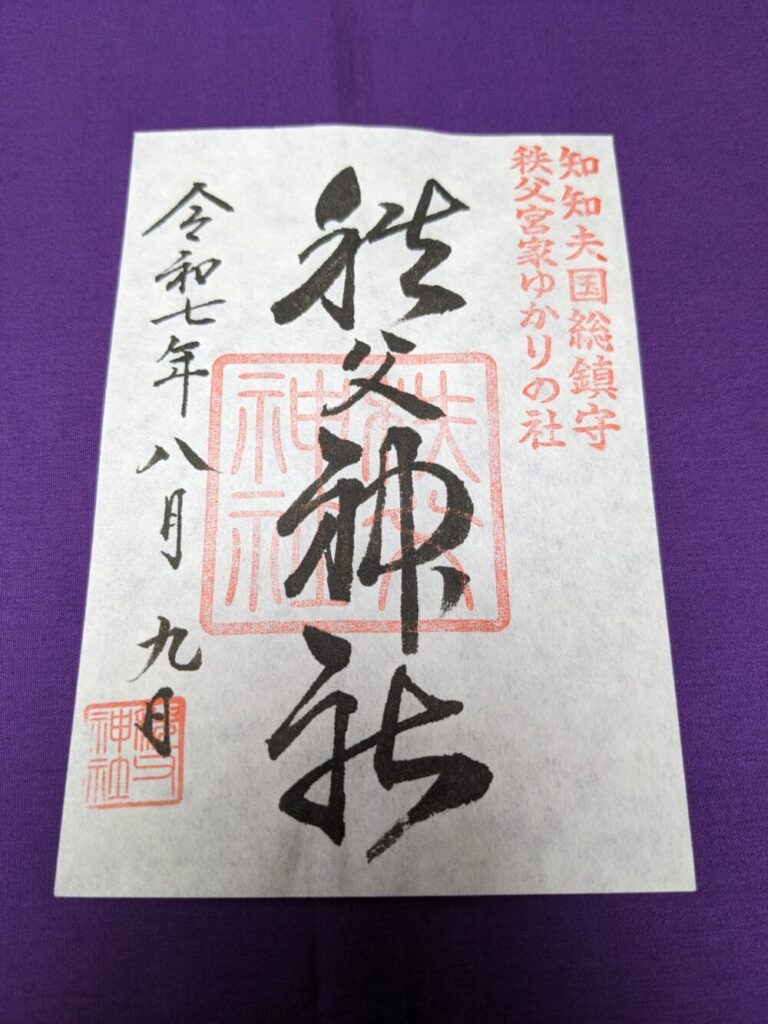 知知夫国総鎮守
秩父宮家ゆかりの社
秩父神社
秩父神社
令和七年八月九日